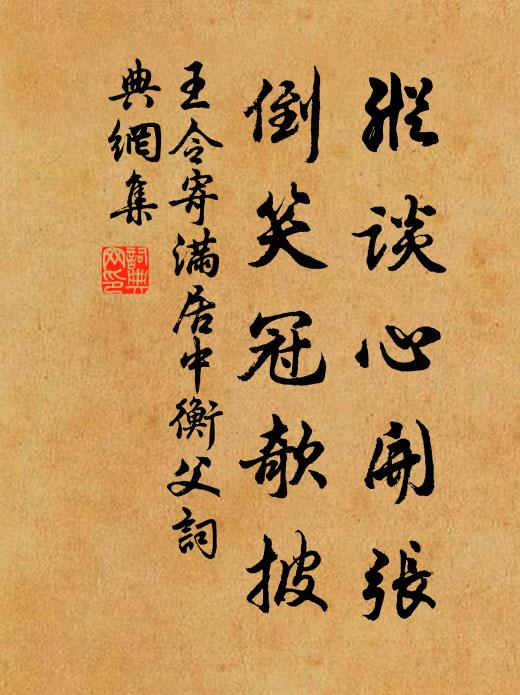 縱談心開張
倒笑冠欹披
王令寄滿居中衡父詞
典網集
詞典
网印